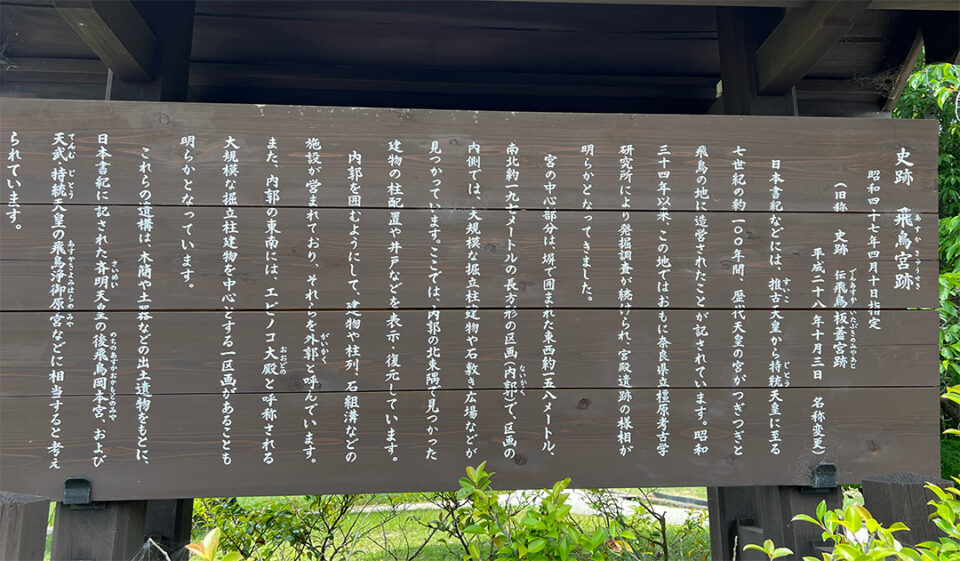 史跡 飛鳥宮跡
昭和四十七年四月十日指定
(旧称 史跡 伝飛鳥板蓋宮跡 平成二十八年十月三日 名称変更)
日本書紀などには、推古天皇から持統天皇に至る
七世紀の約一〇〇年間、歴代天皇の宮がつぎつぎと
飛鳥の地に造営されたことが記されています。昭和
三十四年以来、この地ではおもに奈良県立橿原考古学
研究所により発掘調査が続けられ、宮殿遺跡の様相が
明らかとなってきました。
宮の中心部分は、塀で囲まれた東西約一五八メートル、
南北約一九七メートルの長方形の区画(内郭)で、区画の
内側では、大規模な掘立柱建物や石敷き広場などが
見つかっています。ここでは、内郭の北東隅で見つかった
建物の柱配置や井戸などを表示・復元しています。
内郭を囲むようにして、建物や柱列、石組溝などの
施設が営まれており、それらを外郭と呼んでいます。
また、内郭の東南には、エビノコ大殿と呼称される
大規模な掘立柱建物を中心とする一区画があることも
明らかとなっています。
これらの遺構は、木簡や土器などの出土遺物をもとに、
日本書紀に記された斉明天皇の後飛鳥岡本宮、および
天武・持統天皇の飛鳥浄御原宮などに相当すると考え
られています。